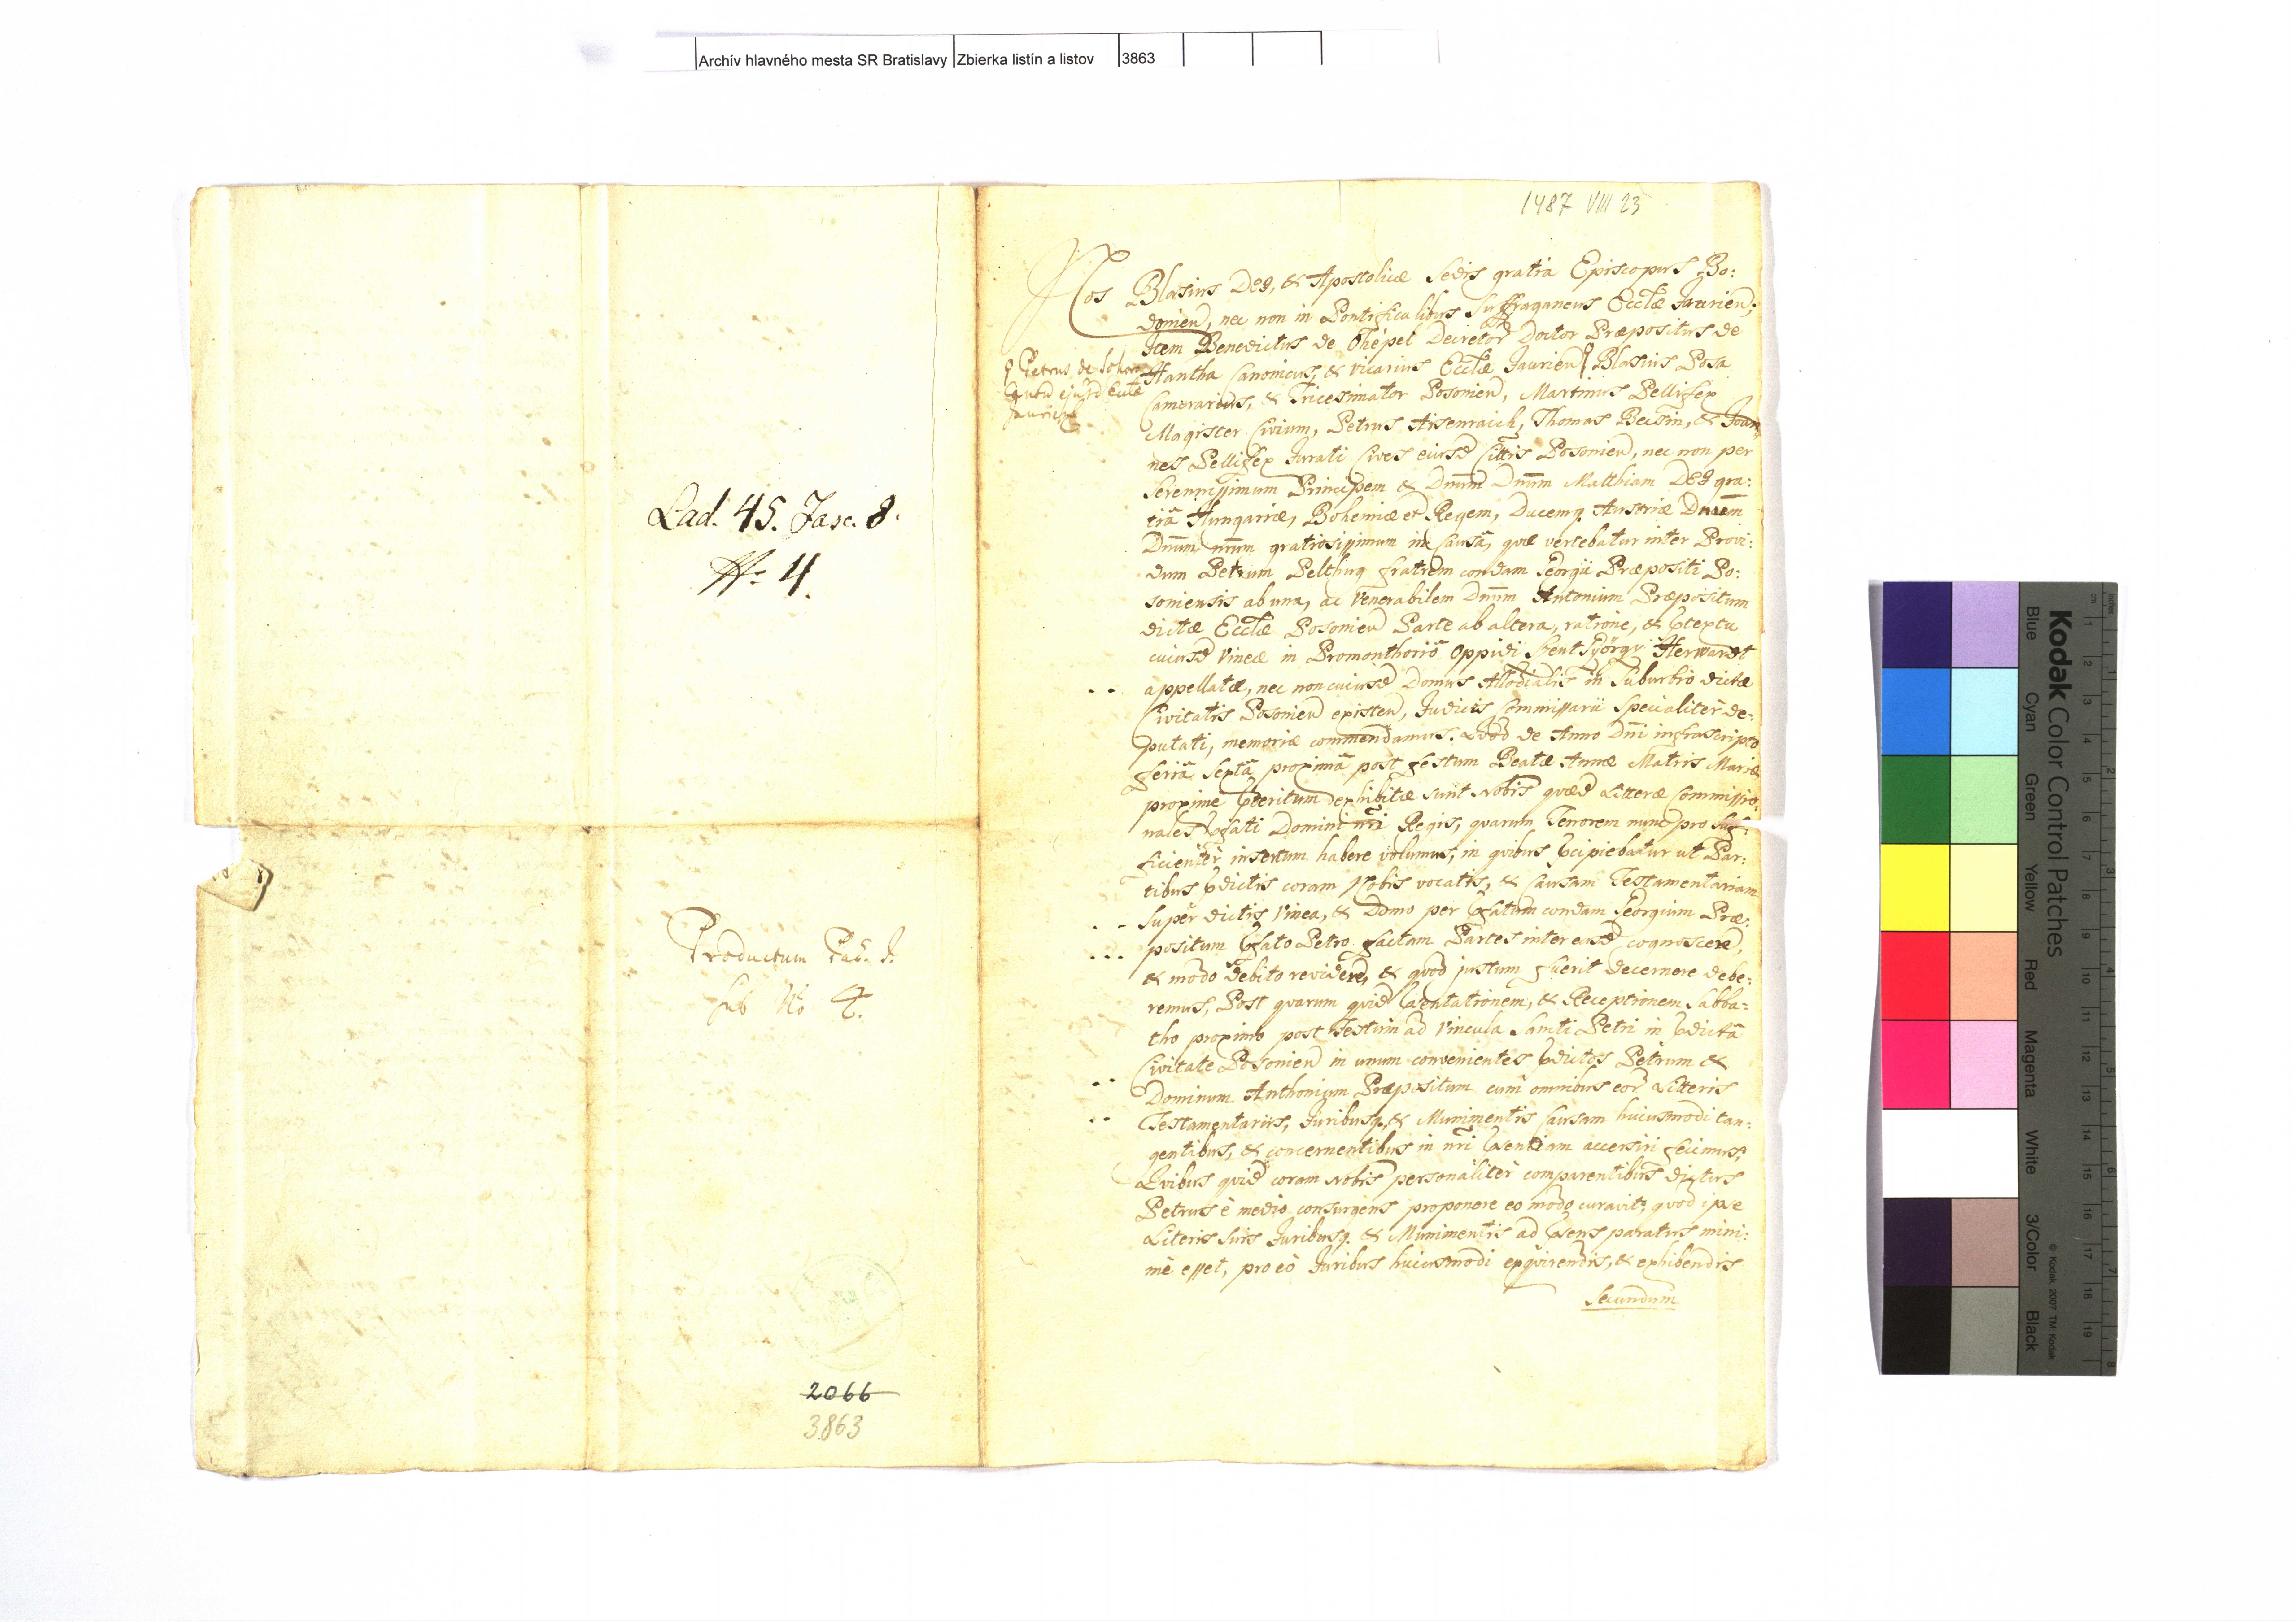 Archív hlavného mesta SR Bratislavy Zbierka listín a listov 3863
Lad. 45. Fasc. 8.
No 4.
Productum Pas. J.
sub No 4.
2066
3863
1487 VIII 23
Nos Blasius Dei, & Apostolicæ Sedis gratia Episcopus Bo:
donien, nec non in Pontificalibus Suffraganeus Eccłæ Jaurien;
Item Benedictus de Thépel Decretor Doctor Præpositus de
Hantha Canonicus, & vicarius Eccłæ Jaurien Blasius Posa
Petrus de
Jaurien
Camerarius, & Tricesimator Posonien, Martinus Pellifex
Magister Civium, Petrus Aisenraich, Thomas Beisin, & Joan
nes Pellifex Jurati Cives eiusd Cittis Posonien, nec non per
Serennissimum Principem & Dnum Dnum Matthiam DEI gra:
tiã Hungariæ, Bohemiæ et Regem, Ducemq. Austriæ
Dnum nrum gratiosissimum in Causã, quæ vertebatur inter Provi:
dum Petrum Pelthug fratrem condam Georgii Præpositi Po:
soniensis ab una, ac Venerabilem Dnum Antonium Præpositum
dictæ Eccłæ Posonien Parte ab altera, ratione, & Ptextu
cuiusd Vineæ in Promonthorio Oppidi Szent Györgÿ Herwardt
appellatæ, nec non cuiusd Domus Allodialis in Suburbio dictæ
Civitatis Posonien existen, Judicis Commissarii Specialiter de:
putati, memoriæ commendamus. Quod de Anno Dni infrascripto
feriâ Sextâ proximâ post festum Beatæ Annæ Matris Mariæ
proxime Pteritum exhibitæ sunt Nobis quæd Litteræ Commissio:
nales Pfati Domini nri Regis, quarum Tenorem nunc pro suf:
ficienter insertum habere volumus, in quibus Pcipiebatur ut Par:
tibus Pdictis coram Nobis vocatis, & Causam Testamentariam
super dictis Vinea, & Domo per Pfatum condam Georgium Præ:
positum Pfato Petro factam Partes inter easd cognoscere,
& modo debito revidere, & quod justum fuerit decernere debe:
remus, Post quarum quid Psentationem, & Receptionem Sabba:
tho proximo post Festum ad Vincula Sancti Petri in Pdictâ
Civitate Posonien in unum convenientes Pdictos Petrum &
Dominum Anthonium Præpositum cum omnibus eor Litteris
Testamentariis, Juribusq, & Munimentis Causam huiusmodi tan:
gentibus, & concernentibus in nri Psentiam accersiri fecimus;
Quibus quid coram Nobis personaliter comparentibus dictus
Petrus è medio consurgens proponere eo modo curavit; quod ipse
Literis suis Juribusq. & Munimentis ad Psens paratus mini:
mè esset, pro eò Juribus huiusmodi exquirendis, & exhibendis
Secundum
Kodak Color Control Patches
Blue Cyan Green Yellow Red Magenta White 3/Color Black
© Kodak, 2007 TM: Kodak
inches 1 2 3 4 5 6 7 8
cm 1 2 3 4 5 6 7 8 9 10 11 12 13 14 15 16 17 18 19